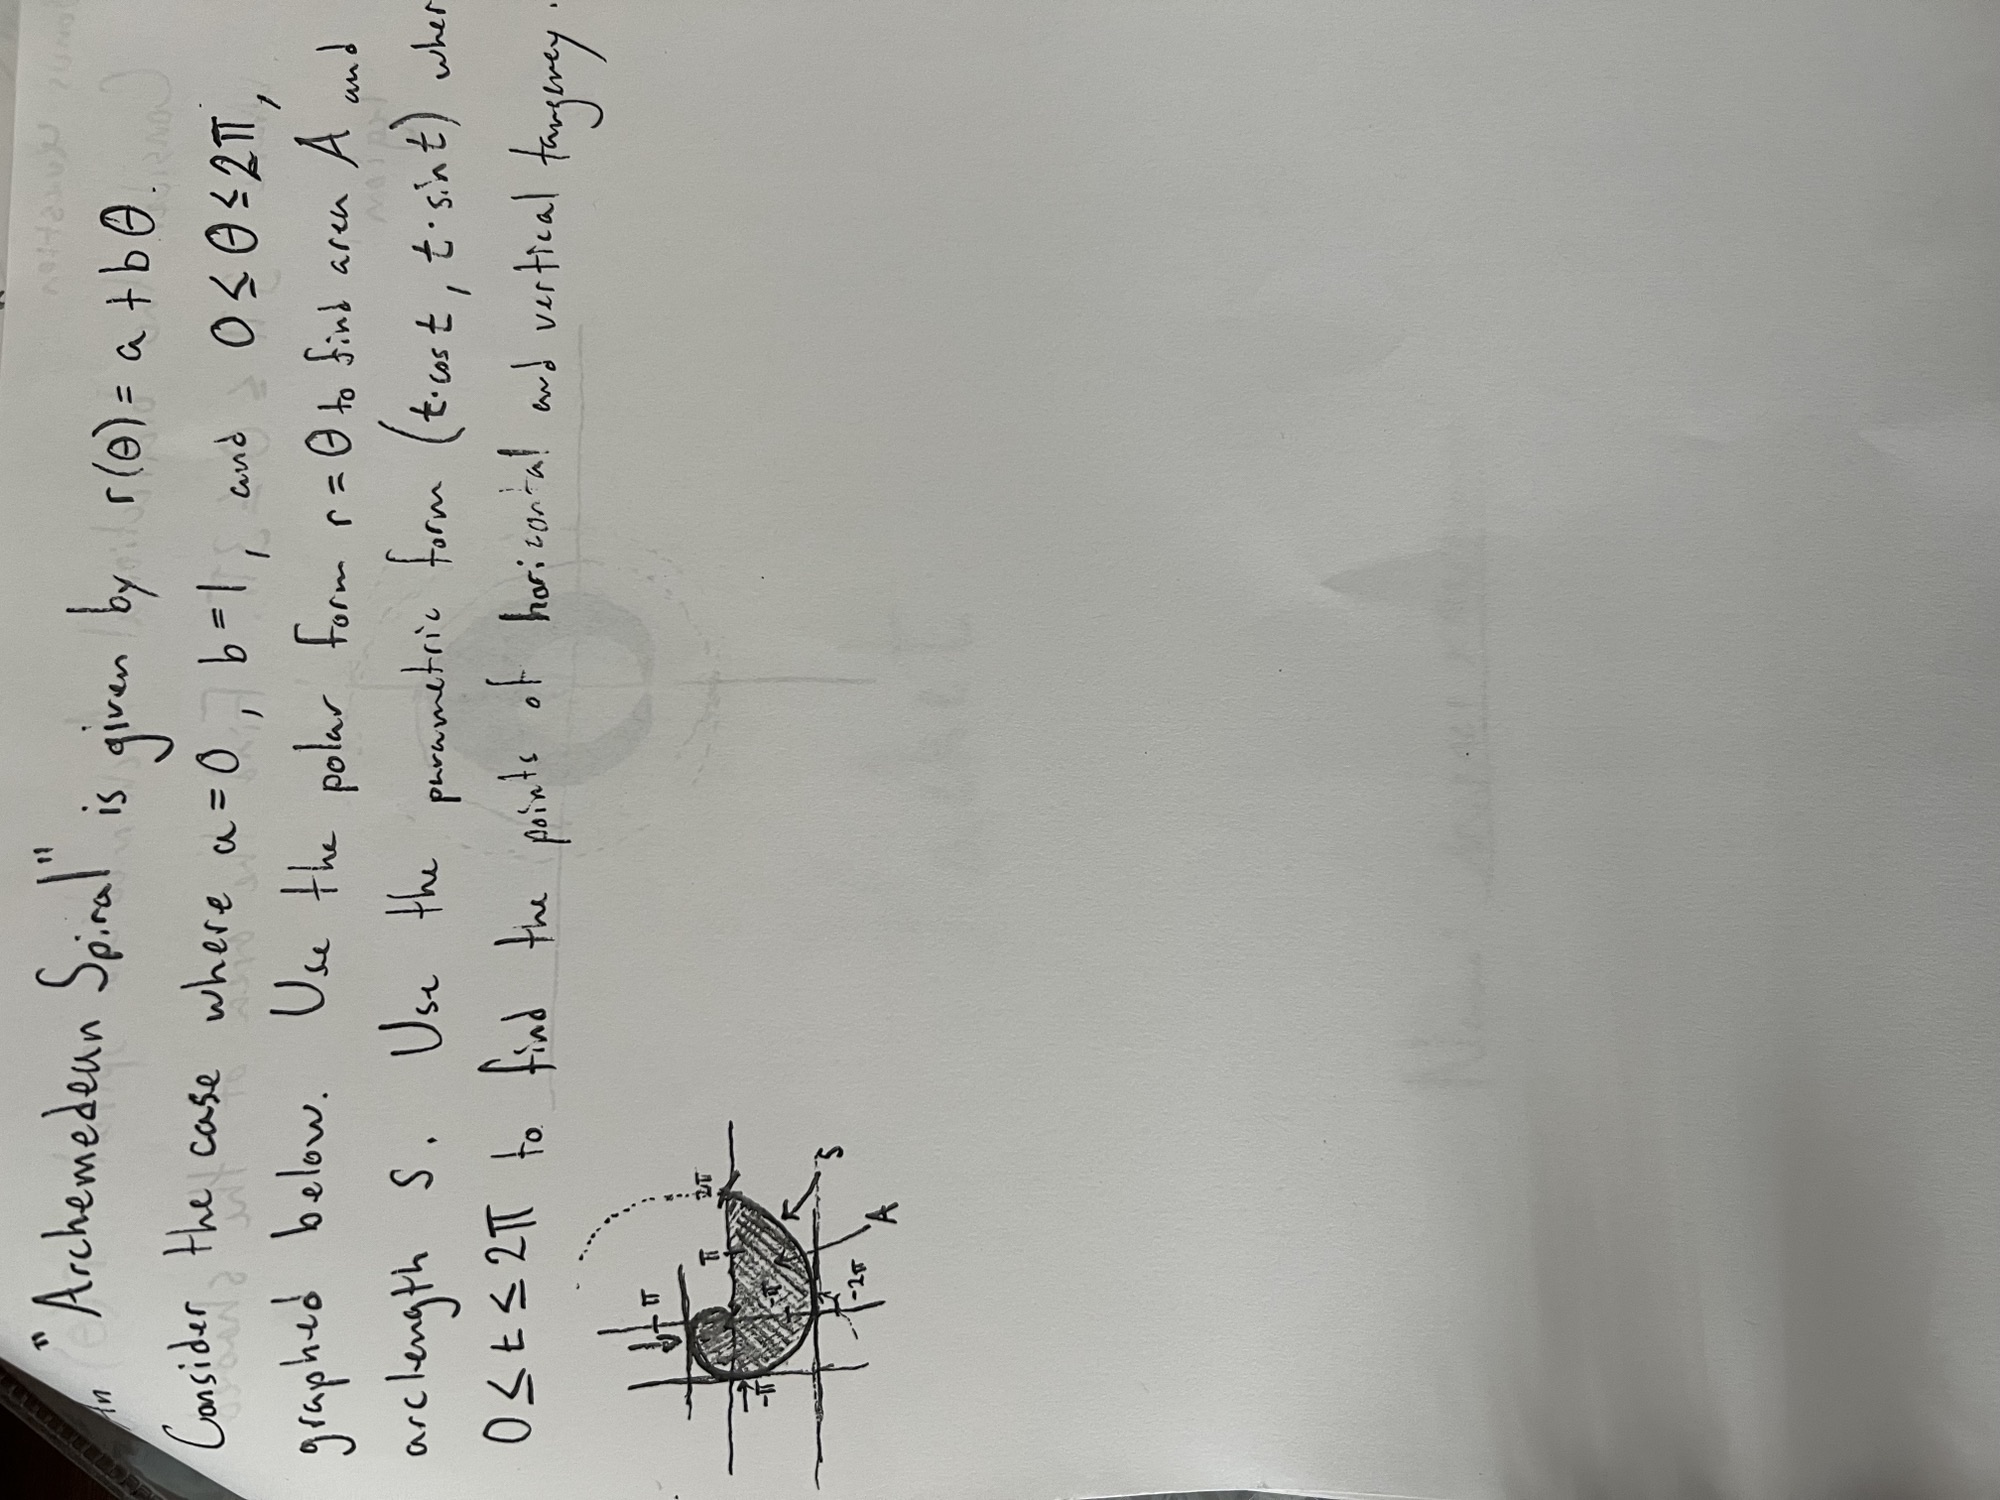 An "Archemedean Spiral" is given by r(θ) = a + bθ.
Consider the case where a = 0, b = 1, and 0 ≤ θ ≤ 2π,
graphed below. Use the polar form r = θ to find area A and
arclength S. Use the parametric form (t·cos t, t·sin t) wher
0 ≤ t ≤ 2π to find the points of horizontal and vertical tangency.
π
-π
π
2π
-π
-2π
S
A